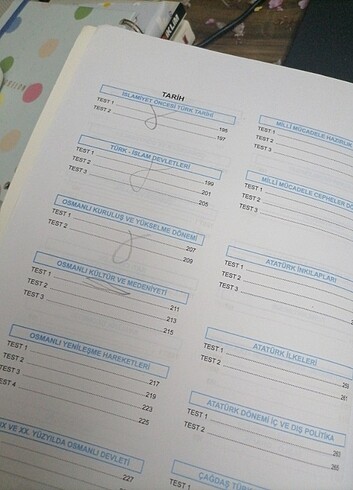 TARİH
İSLAMİYET ÖNCESİ TÜRK TARİHİ
TEST 1 195
TEST 2 197
TÜRK - İSLAM DEVLETLERİ
TEST 1 199
TEST 2 201
TEST 3 205
OSMANLI KURULUŞ VE YÜKSELME DÖNEMİ
TEST 1 207
TEST 2 209
OSMANLI KÜLTÜR VE MEDENİYETİ
TEST 1 211
TEST 2 213
TEST 3 215
OSMANLI YENİLEŞME HAREKETLERİ
TEST 1 217
TEST 2 219
TEST 3 223
TEST 4 225
VE XX. YÜZYILDA OSMANLI DEVLETİ
227
MİLLİ MÜCADELE HAZIRLIK
TEST 1
TEST 2
TEST 3
MİLLİ MÜCADELE CEPHELER DÖ
TEST 1
TEST 2
ATATÜRK İNKILAPLARI
TEST 1
TEST 2
TEST 3
ATATÜRK İLKELERİ
TEST 1
TEST 2
ATATÜRK DÖNEMİ İÇ VE DIŞ POLİTİKA
TEST 1 263
TEST 2 265
ÇAĞDAŞ TÜR